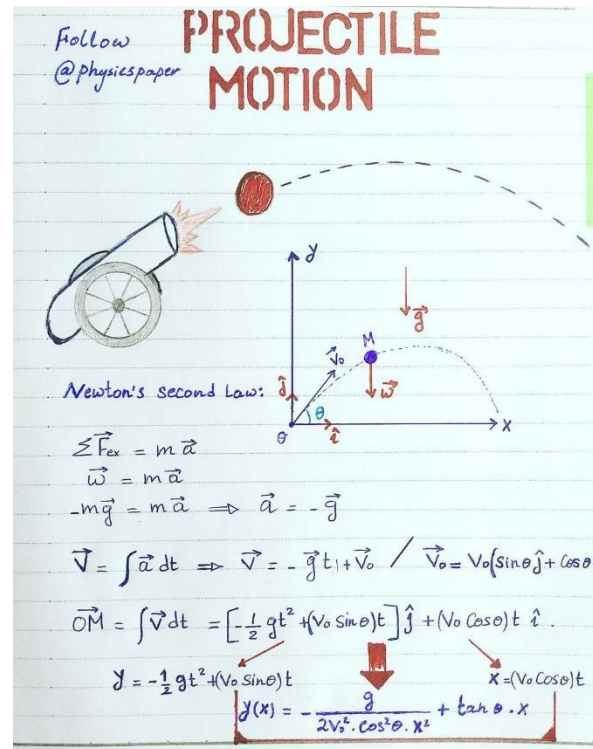 Follow
@physicspaper
PROJECTILE
MOTION
y
g⃗
M
V⃗₀
w⃗
ĵ
θ
O
î
x
Newton's second Law:
ΣF⃗ₑₓ = m a⃗
w⃗ = m a⃗
-mg⃗ = m a⃗ ⇒ a⃗ = -g⃗
V⃗ = ∫a⃗ dt ⇒ V⃗ = -g⃗t + V⃗₀ / V⃗₀ = V₀(sinθ ĵ + cosθ
OM⃗ = ∫V⃗dt = [-½ gt² + (V₀ sinθ)t] ĵ + (V₀ Cosθ)t î.
y = -½ gt² + (V₀ Sinθ)t
x = (V₀ Cosθ)t
y(x) = - g / 2V₀². cos²θ. x² + tanθ. x